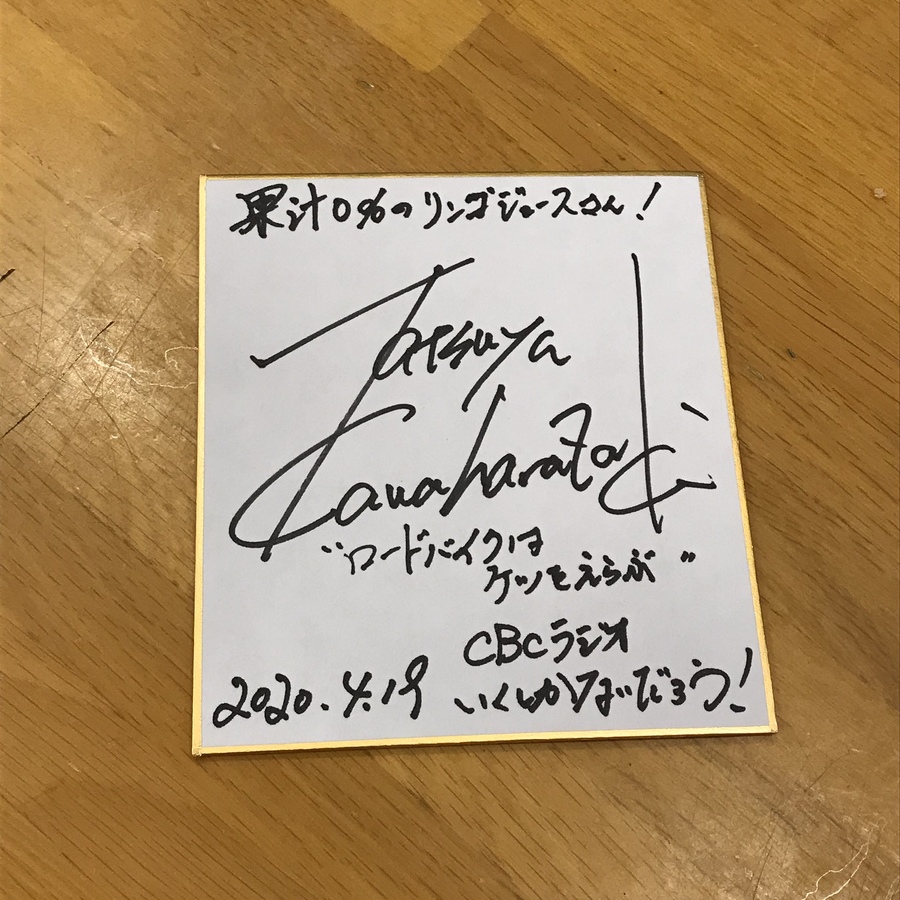 果汁0%のリンゴジュースさん!
Tatsuya
Kawaharazaki
"ロードバイクは
ケツをえらぶ"
CBCラジオ
2020.4.19 いくしかないだろう!